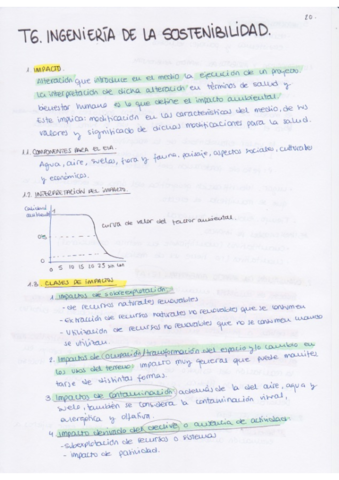 20.
T6. INGENIERÍA DE LA SOSTENIBILIDAD.
1. IMPACTO
Alteración que introduce en el medio la ejecución de un proyecto
la interpretación de dicha alteración en términos de salud y
bienestar humano es lo que define el impacto ambiental.
Esto implica modificación en las características del medio, de
valores y significado de dichas modificaciones para la salud.
1.1. COMPONENTES PARA EL EIA.
Agua, aire, suelos, flora y fauna, paisaje, aspectos sociales, culturales
y económicos.
1.2. INTERPRETACIÓN DEL IMPACTO
calidad
ambiental
curva de valor del factor ambiental.
0'5
0
0 5 10 15 20 25
1.3. CLASES DE IMPACTOS
1. Impactos de sobreexplotación:
- de recursos naturales renovables
- extracción de recursos naturales no renovables que se consumen
se utilizan.
- utilización de recursos naturales no renovables que no se consumen cuando
se utilizan.
2. Impactos de ocupación/transformación del espacio y/o cambios en
los usos del terreno: impacto muy general que puede manifes
tarse de distintas formas.
3. Impactos de contaminación: además de la del aire, agua y
suelo, también se considera la contaminación visual,
energética y olfativa.
4. Impacto derivado del efectivo o ausencia de actividades
- subexplotación de recursos o sistemas
- impacto de pasividad.